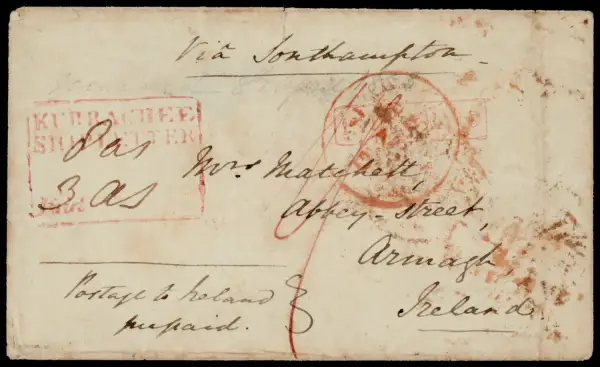 Via Southampton
KURRACHEE
SHIP LETTER
3 as
Mrs. Matchett,
Abbey-street,
Armagh,
Ireland.
Postage to Ireland